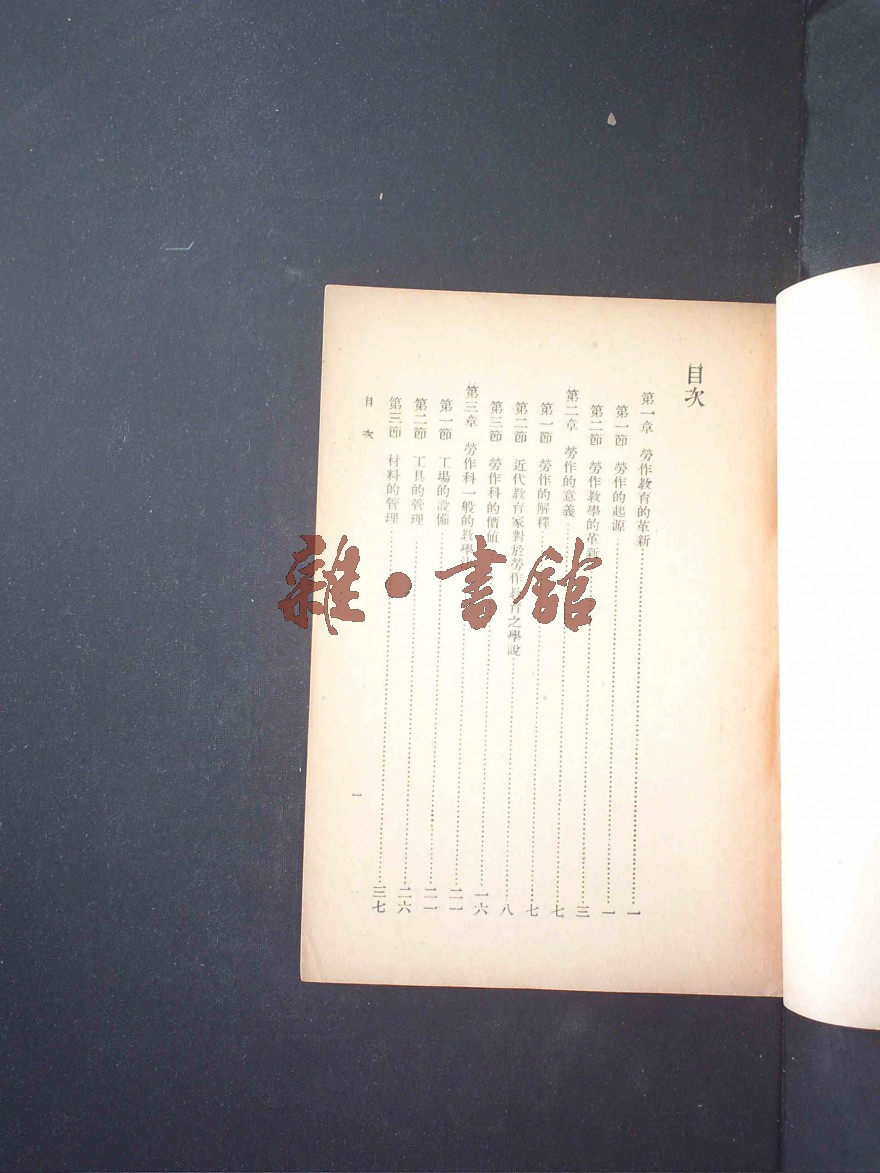 目次
第一章 勞作教育的革新 一
第一節 勞作的起源 一
第二節 勞作教學的革新 三
第二章 勞作的意義 七
第一節 勞作的解釋 七
第二節 近代教育家對於勞作教育之學說 八
第三節 勞作科的價值 一六
第三章 勞作科一般的教學 二一
第一節 工場的設備 二一
第二節 工具的管理 二六
第三節 材料的管理 三七
目次
一
雜・書館